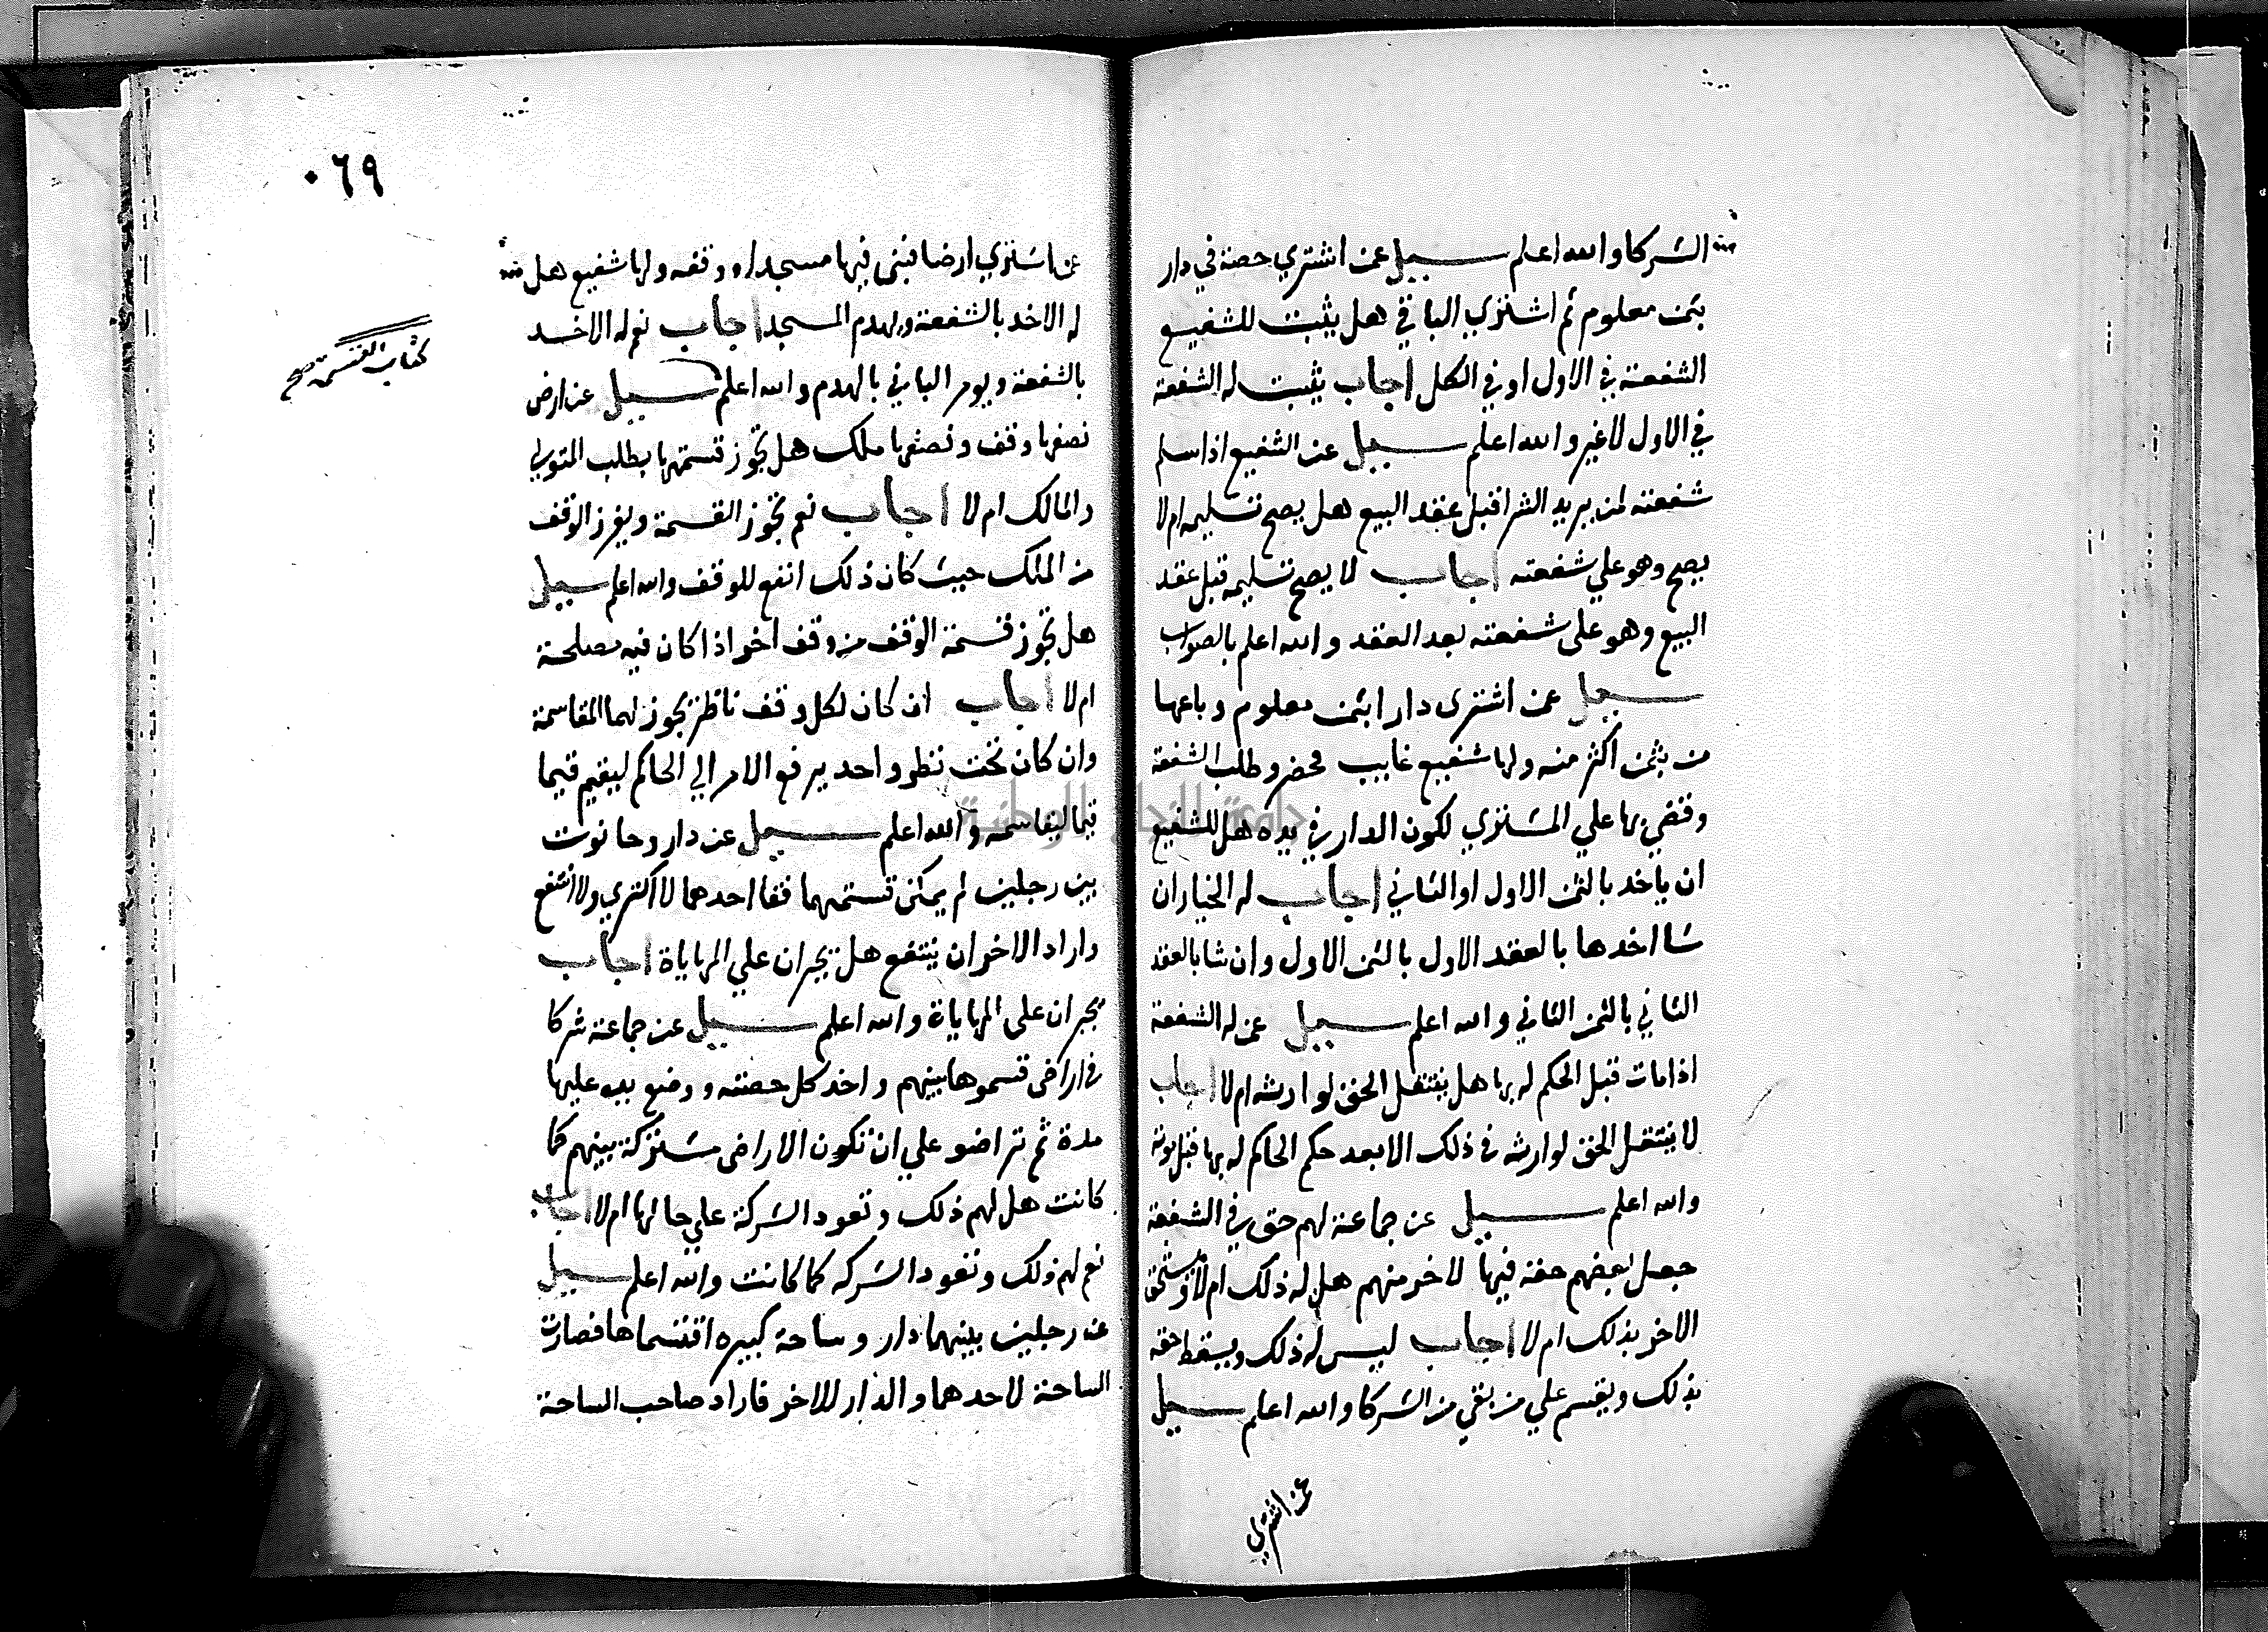 الشركا والله اعلم سيل عمن اشتري حصة في دار
بثمن معلوم ثم اشتري الباقي هل يثبت للشفيع
الشفعة في الاول او في الكل اجاب يثبت له الشفعة
في الاول لا غير والله اعلم سيل عن الشفيع اذا سلم
شفعته لمن يريد الشرا قبل عقد البيع هل يصح تسليمه ام لا
يصح وهو علي شفعته اجاب لا يصح تسليمه قبل عقد
البيع وهو على شفعته بعد العقد والله اعلم بالصواب
سيل عمن اشترى دارا بثمن معلوم وباعها
من بثمن اكثر منه ولها شفيع غايب فحضر وطلب الشفعة
وقضي بها علي المشتري لكون الدار في يده هل للشفيع
ان ياخد بالثمن الاول او الثاني اجاب له الخيار ان
شا اخدها بالعقد الاول بالثمن الاول وان شا بالعقد
الثاني بالثمن الثاني والله اعلم سيل عمن له الشفعة
اذا مات قبل الحكم له بها هل ينتقل الحق لوارثه ام لا اجاب
لا ينتقل الحق لوارثه في ذلك الا بعد حكم الحاكم له بها قبل موته
والله اعلم سيل عن جماعة لهم حق في الشفعة
جعل بعضهم حقه فيها لاخر منهم هل له ذلك ام لا ويستحق
الاخر بذلك ام لا اجاب ليس له ذلك ويسقط حقه
بذلك ويقسم علي من بقي من الشركا والله اعلم سيل
عن اشتري
٠٦٩
عن اشتري ارضا فبنى فيها مسجدا ووقفه ولها شفيع هل
له الاخد بالشفعة ويهدم المسجد اجاب نعم له الاخد
بالشفعة ويومر الباني بالهدم والله اعلم سيل عن ارض
نصفها وقف ونصفها ملك هل تجوز قسمتها بطلب المتولي
والمالك ام لا اجاب نعم تجوز القسمة ويفرز الوقف
من الملك حيث كان ذلك انفع للوقف والله اعلم سيل
هل تجوز قسمة الوقف من وقف اخر اذا كان فيه مصلحة
ام لا اجاب ان كان لكل وقف ناظر يجوز لهما المقاسمة
وان كان تحت نظر واحد يرفع الامر الي الحاكم ليقيم قيما
قيما ليقاسمه والله اعلم سيل عن دار وحانوت
بين رجلين لم يمكن قسمتهما فقا احدهما لا اكتري ولا انتفع
واراد الاخر ان ينتفع هل يجبران علي المهاياة اجاب
يجبران على المهاياة والله اعلم سيل عن جماعة شركا
في اراضي قسموها بينهم واخد كل حصته ووضع يده عليها
مدة ثم تراضو علي ان تكون الاراضى مشتركة بينهم كما
كانت هل لهم ذلك وتعود الشركة علي حالها ام لا اجاب
نعم لهم ذلك وتعود الشركه كما كانت والله اعلم سيل
عن رجلين بينهما دار وساحة كبيره اقتسماها فصارت
الساحة لاحدهما والدار للاخر فاراد صاحب الساحة
كتاب القسمة صح
جامعة النجاح الوطنية